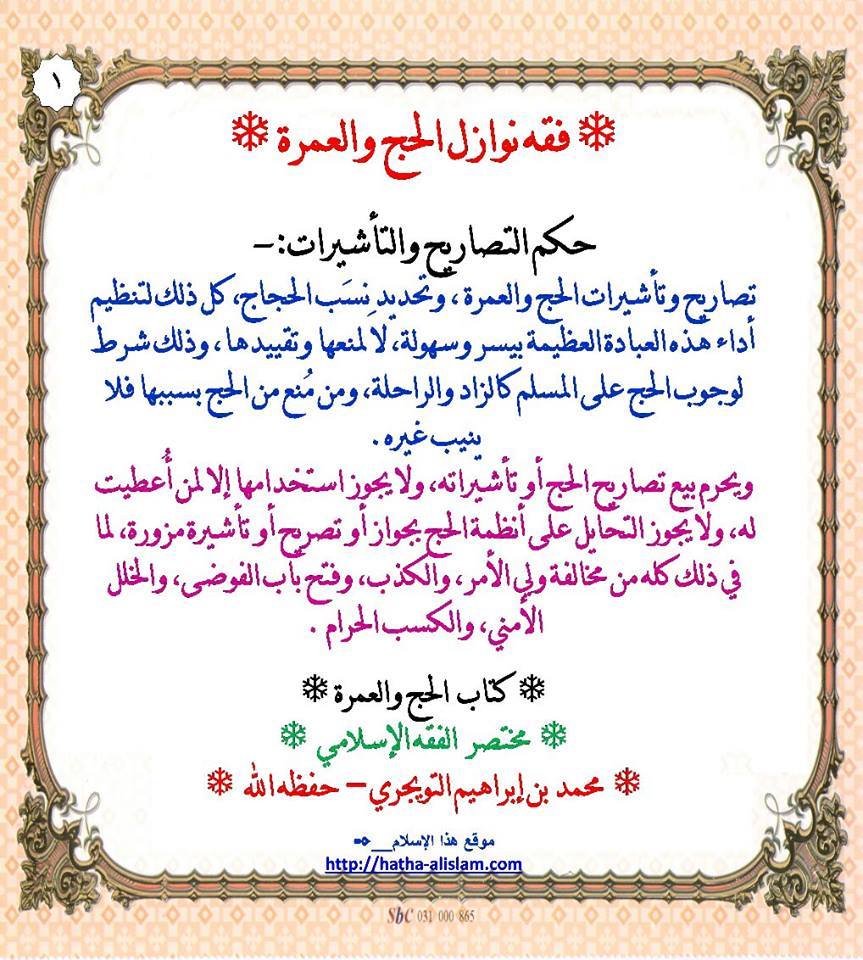 ١
❄ فقه نوازل الحج والعمرة ❄
حكم التصاريح والتأشيرات:-
تصاريح وتأشيرات الحج والعمرة ، وتحديد نِسَب الحجاج، كل ذلك لتنظيم
أداء هذه العبادة العظيمة بيسر وسهولة، لا لمنعها وتقييدها ، وذلك شرط
لوجوب الحج على المسلم كالزاد والراحلة، ومن مُنع من الحج بسببها فلا
ينيب غيره .
ويحرم بيع تصاريح الحج أو تأشيراته، ولا يجوز استخدامها إلا لمن أُعطيت
له، ولا يجوز التحايل على أنظمة الحج بجواز أو تصريح أو تأشيرة مزورة، لما
في ذلك كله من مخالفة ولي الأمر، والكذب، وفتح باب الفوضى، والخلل
الأمني، والكسب الحرام .
❄ كتاب الحج والعمرة ❄
❄ مختصر الفقه الإسلامي ❄
❄ محمد بن إبراهيم التويجري – حفظه الله ❄
موقع هذا الإسلام__
http://hatha-alislam.com
SbC 031 000 865